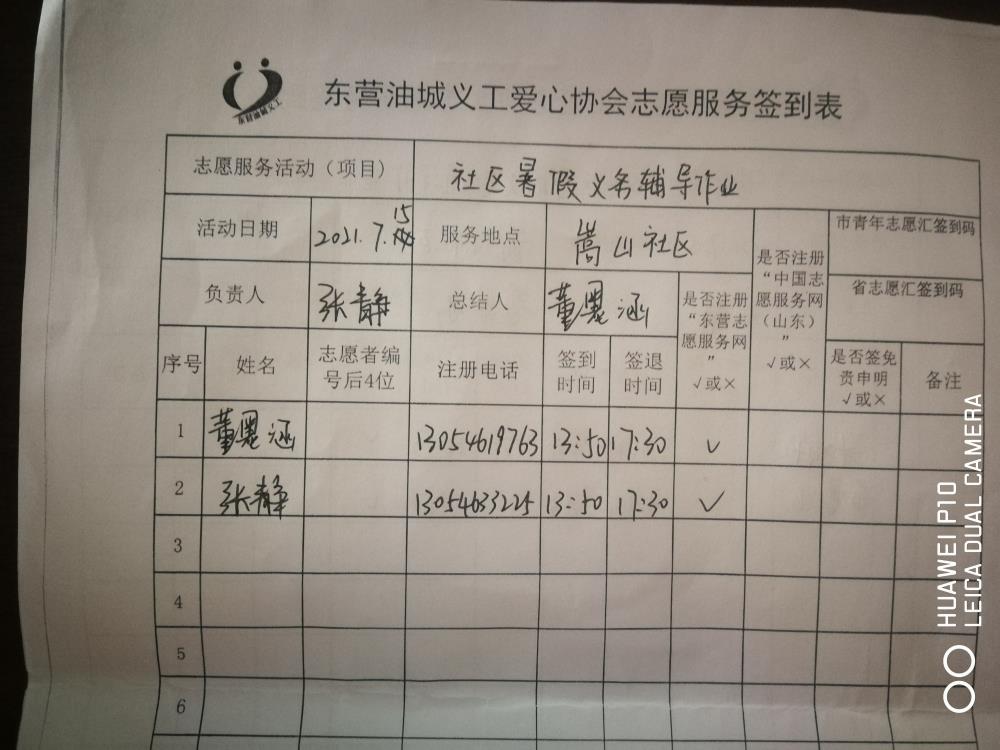 东营油城义工
东营油城义工爱心协会志愿服务签到表
志愿服务活动（项目） 社区暑假义务辅导作业
活动日期 2021.7.15 服务地点 嵩山社区
是否注册“中国志愿服务网（山东）”√或×
市青年志愿汇签到码
负责人 张静 总结人 董恩涵
是否注册“东营志愿服务网”√或×
省志愿汇签到码
序号 姓名 志愿者编号后4位 注册电话 签到时间 签退时间 是否签免责申明√或× 备注
1 董恩涵 13054619763 13:50 17:30 √
2 张静 13054633225 13:50 17:30 √
3
4
5
6
HUAWEI P10
LEICA DUAL CAMERA